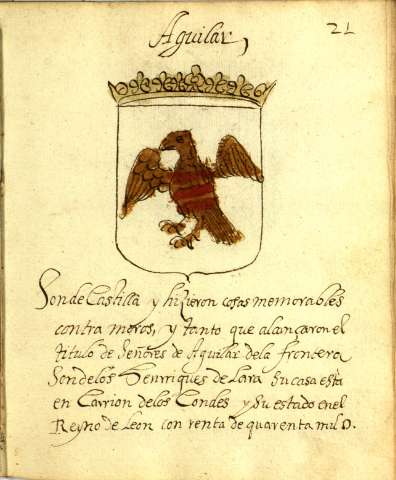 Aguilar,
21
Son de Castilla y hizieron cosas memorables
contra moros, y tanto que alcançaron el
titulo de Señores de Aguilar dela frontera
Son delos Henrriques de Lara Su casa esta
en Carrion delos Condes y Su estado en el
Reyno de Leon con renta de quarenta mil D.